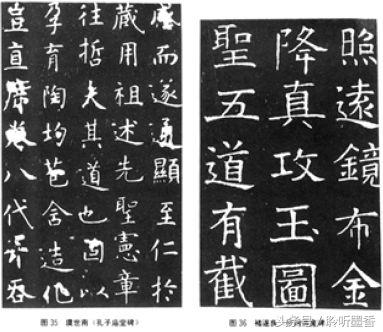 感而遂通顯至仁於
藏用祖述先聖憲章
往哲夫其道也固以
孕育陶均苞含造化
豈直席卷八代并吞
图 35 虞世南（孔子庙堂碑）
照遠鏡布金
降真攻玉圖
聖五道有截
图 36 褚遂良
头条号/聆听墨香